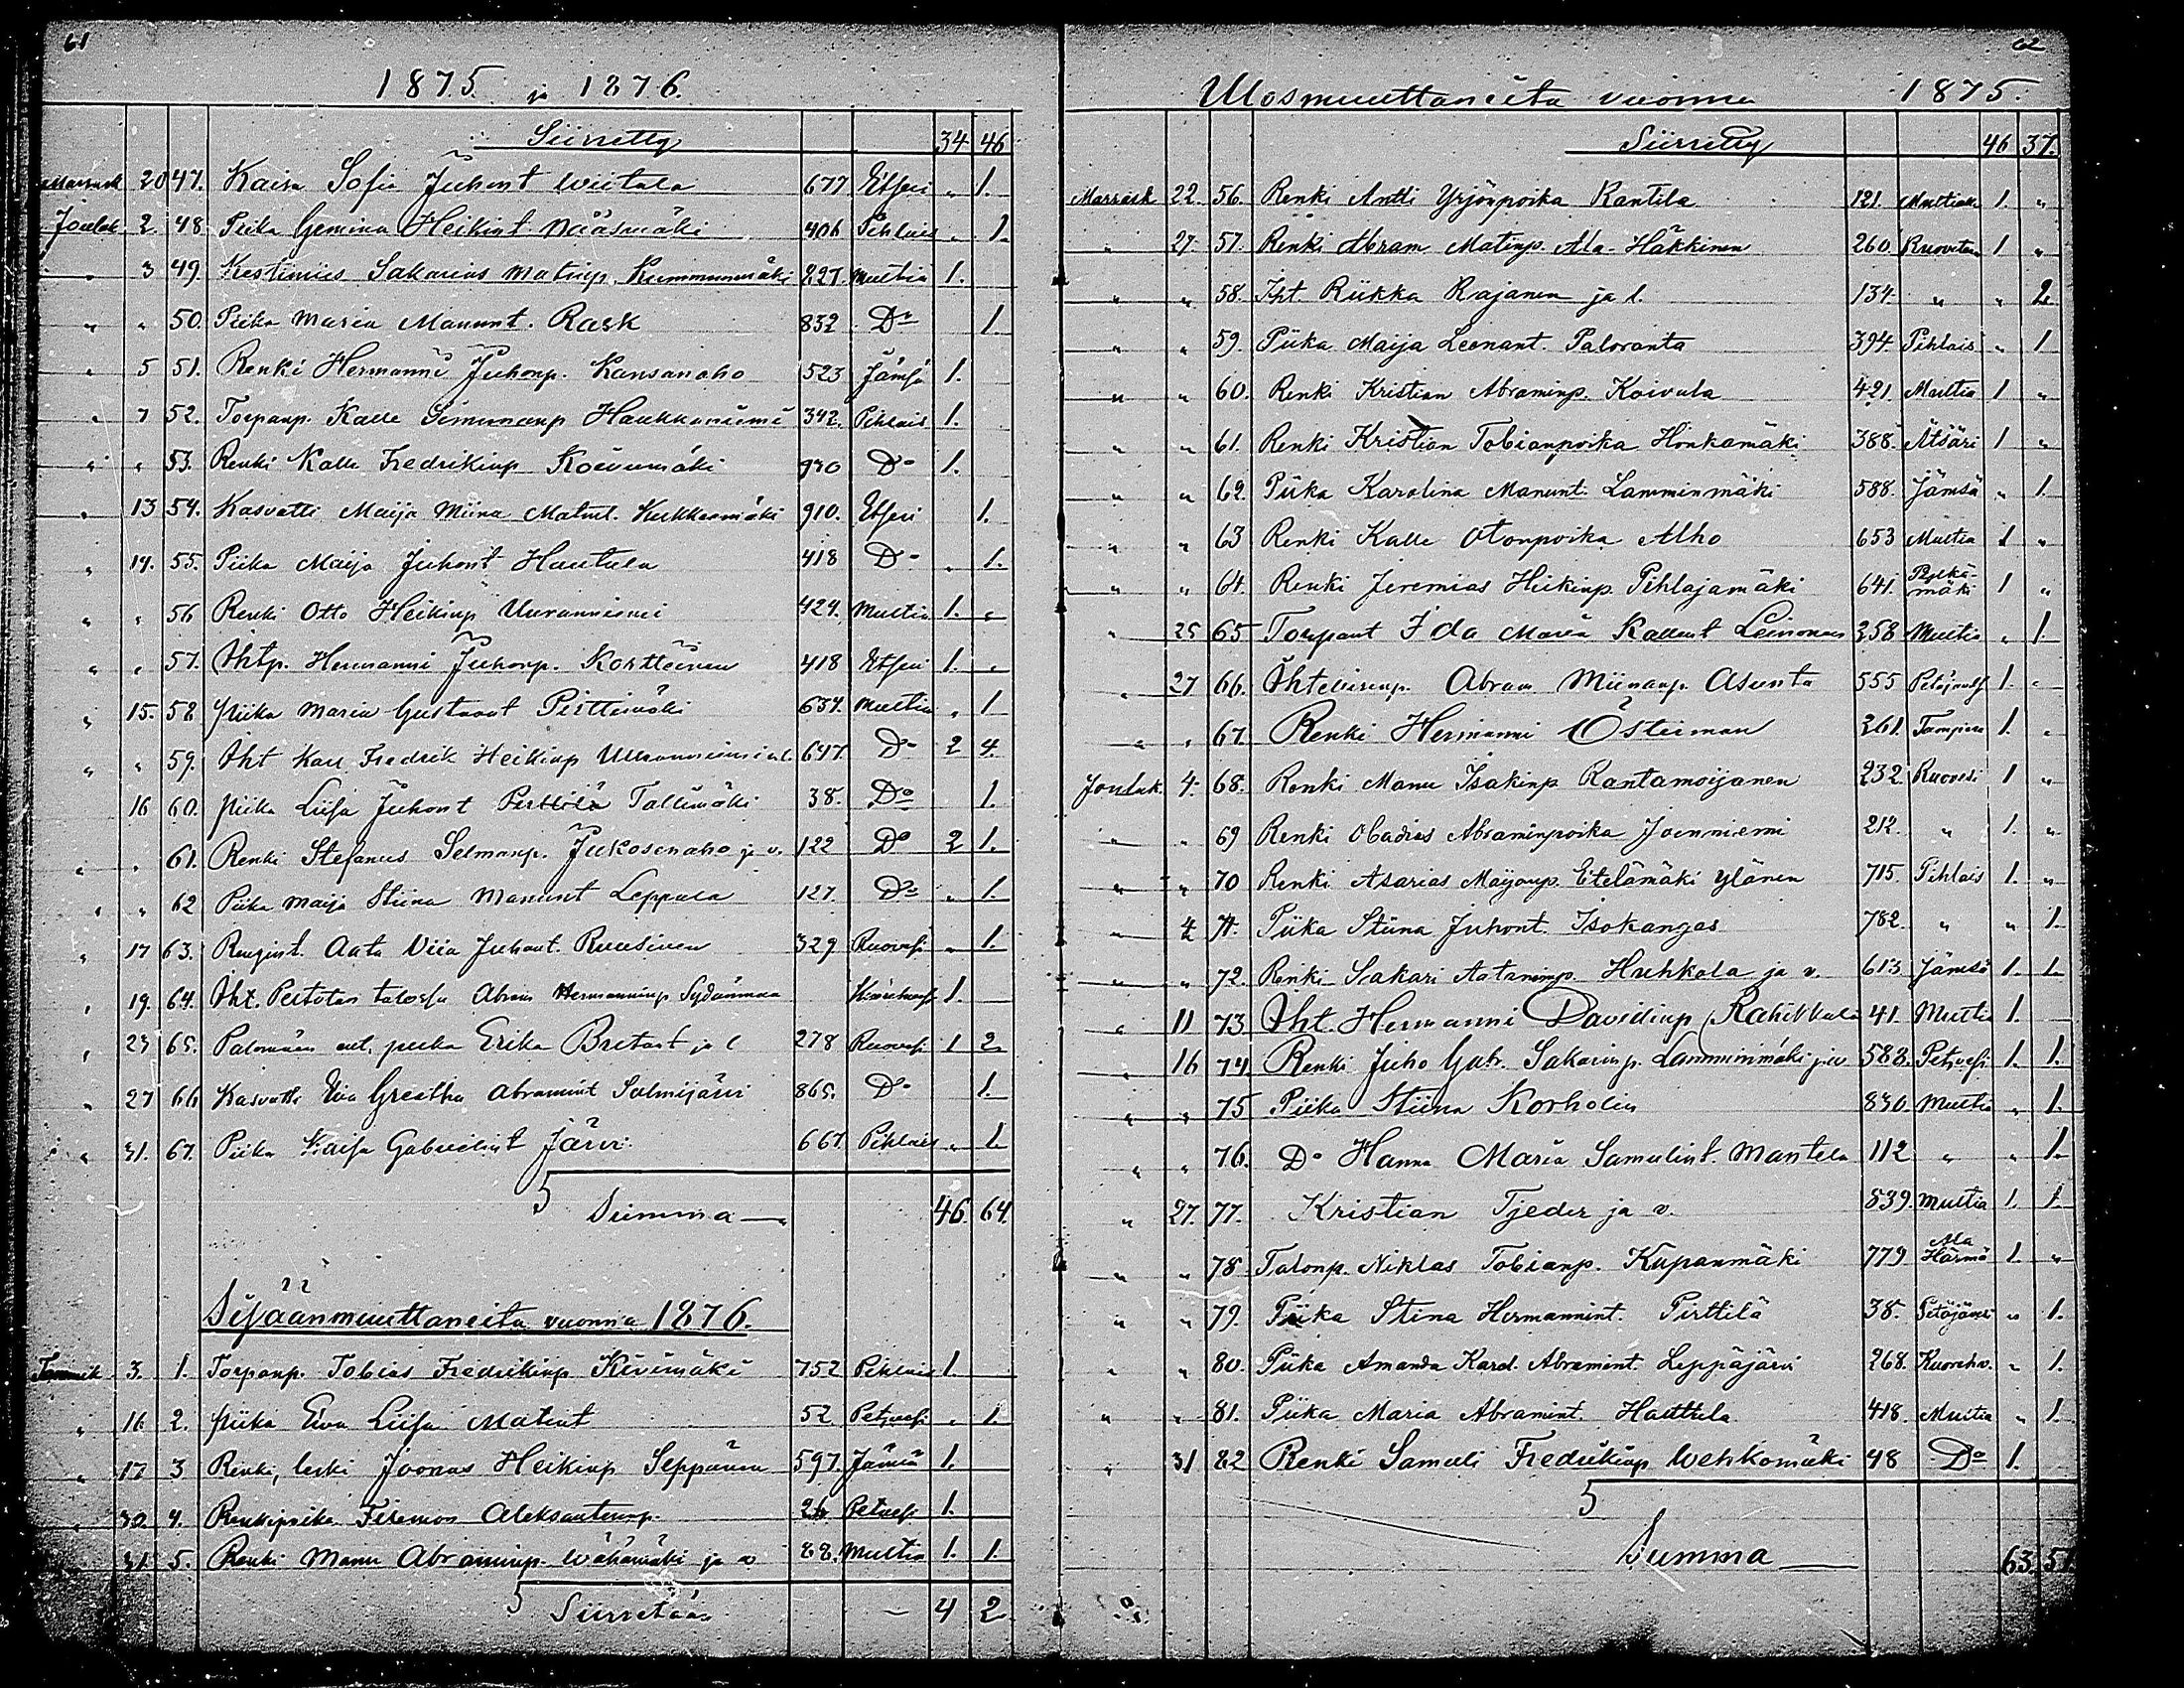 61
1875. ja 1876.
Siirretty 34 46
Marrask 20 47. Kaisa Sofia Juhont Wiitala 677 Etseri „ 1.
Jouluk 2 48 Piika Gemina Heikint Nääsmäki 406 Pihlais „ 1.
„ 3 49. Kestimies Sakarias Matinp. Kummunmäki 227. Multia 1.
„ „ 50 Piika Maria Manunt. Rask 832 Do 1
„ 5 51. Renki Hermanni Juhonp. Kansanaho 523 Jämsä 1.
„ 7 52. Torpanp. Kalle Simunanp Haukkaniemi 342. Pihlais 1.
„ „ 53. Renki Kalle Fredrikinp Koivumäki 930 Do 1.
„ 13 54. Kasvatti Maija Miina Matint. Kukkarmäki 910. Etseri 1.
„ 14. 55. Piika Maija Juhont Hautala 418 Do „ 1.
„ „ 56 Renki Otto Heikinp Uuranniemi 424. Multia 1. „
„ „ 57. Ihtp. Hermanni Juhonp. Kortteinen 418 Etseri 1. „
„ 15. 58 piika Maria Gustaant Pirttimäki 634. Multia „ 1
„ „ 59. Iht Karl Fredrik Heikinp 647. Do 2 4.
16 60. piika Liisa Juhont Perttilä Tallimäki 38. Do 1.
„ „ 61. Renki Stefanus Selmanp. Jukosenaho ja v. 122 Do 2 1.
„ „ 62 Piika Maija Stiina Manunt Leppala 127. Do „ 1.
„ 17 63. Rengint. Aata Viia Juhont Ruusinen 329 Ruovesi „ 1.
„ 19. 64. Iht. talossa Abram Hermanninp Sydänmaa 1.
„ 23 65. Palowaara ent. piika Erika Britant ja l 278 Ruovesi 1 2.
„ 27 66 Kasvatti Eva Greetha Abramint Salmijärvi 865. Do 1.
„ 31. 67. Piika Kaisa Gabrielint Järvi 667. Pihlais „ 1.
Summa 46. 64.
Sisäänmuuttaneita vuonna 1876.
Tammik 3. 1. Torpanp. Tobias Fredrikinp Kivimäki 752 Pihlais 1.
„ 16 2. piika Eva Liisa Matint 52 Petjvesi „ 1.
„ 17 3 Renki, leski Joonas Heikinp Seppänen 597. Jämsä 1.
„ 30. 4. Renkipoika Firemon Aleksanterinp. 26 Petvesi 1.
„ 31. 5. Renki Manu Abraminp. Wähämäki ja v 88. Multia 1. 1.
Siirretään 4 2
62
Ulosmuuttaneita vuonna 1875.
Siirretty 46 37.
Marrask 22. 56. Renki Antti Yrjönpoika Rantila 121. Multiaa 1. „
„ 27. 57. Renki Abram Matinp. Ala-Häkkinen 260. Ruovten 1 „
„ „ 58. Iht. Riikka Rajanen ja l. 134. „ „ 2.
„ „ 59. Piika Maija Leenant. Paloranta 394. Pihlais „ 1
„ „ 60. Renki Kristian Abraminp. Koivula 421. Multia 1 „
„ „ 61. Renki Kristian Tobianpoika Honkamäki 388. Ätsäri 1 „
„ „ 62. Piika Karolina Manunt. Lamminmäki 588. Jämsä „ 1.
„ „ 63 Renki Kalle Otonpoika Alho 653 Multia 1 „
„ „ 64. Renki Jeremias Heikinp. Pihlajamäki 641. Pelkä-mäki 1 „
„ 25 65 Torpant Ida Maria Kallent Leinonen 358 Multia „ 1
„ 27 66. Ihtellisenp. Abram Miinanp. Asunta 555 Petäjavesi 1. „
„ „ 67. Renki Hermanni Österman 261. Tampere 1. „
Jouluk. 4. 68. Renki Manu Isakinp Rantamoijanen 232. Ruovesi 1 „
„ „ 69 Renki Obadias Abraminpoika Joenniemi 212. „ 1. „
„ „ 70 Renki Asarias Maijanp. Etelämäki Ylänen 715. Pihlais 1. „
„ 4 71. Piika Stiina Juhont. Isokangas 782. „ „ 1.
„ „ 72. Renki Sakari Aataminp. Huhkala ja v. 613. Jämsä 1. 1.
„ 11 73 Iht. Hermanni Davidinp Rahikkala 41. Multia 1.
„ 16 74. Renki Juho Gab. Sakarinp. Lamminmäki ja v 588. Petvesi 1. 1.
„ „ 75 Piika Stiina Korholin 830. Multia „ 1.
„ „ 76. Do Hanna Maria Samulint. Mantela 112 „ „ 1.
„ 27. 77. Kristian Tjeder ja v. 539. Multia 1. 1.
„ „ 78 Talonp. Niklas Tobianp. Kupanmäki 779. Ala Härmä 1. „
„ „ 79. Piika Stina Hermannint. Pirttilä 38. Petäjävesi „ 1.
„ „ 80. Piika Amanda Karol. Abramint. Leppäjärvi 268. Kuoreh. „ 1.
„ „ 81. Piika Maria Abramint. Hauttala 418. Multia „ 1.
„ 31 82 Renki Samuli Fredrikinp Wehkomäki 48 Do 1.
Summa 63. 57.